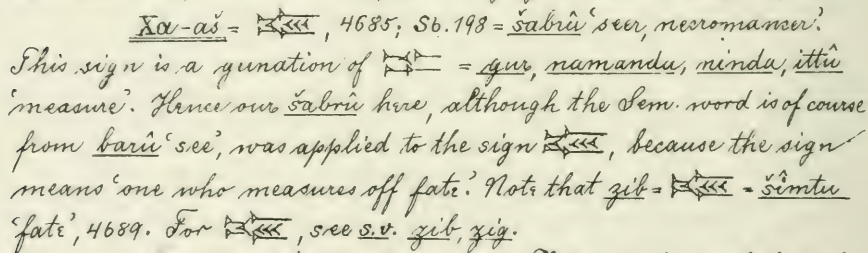 Xa-aš = 𒍦, 4685; Sb. 198 = šabrû ‘seer, necromancer’.
This sign is a gunation of = gur, namandu, ninda, ittû
‘measure’. Hence our šabrû here, although the Sem. word is of course
from barû ‘see’, was applied to the sign 𒍦, because the sign
means ‘one who measures off fate’. Note that zib = 𒍦 = šîmtu
‘fate’, 4689. For 𒍦, see s.v. zib, zig.